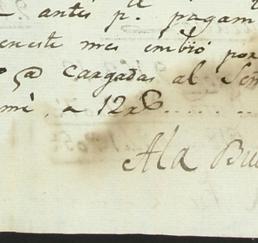 antes p.r pagam
eneste mes embió por
@ cargadas al Señ
mè, a 12
Ala Bue